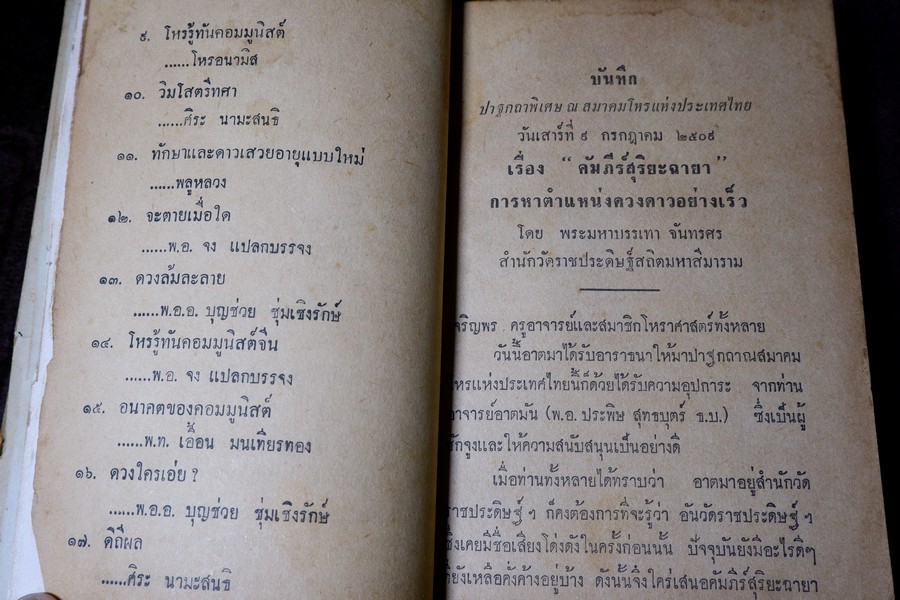 ๙. โหรรู้ทันคอมมูนิสต์
......โหรอนามิส
๑๐. วิมโสตรีทศา
......ศิระ นามะสนธิ
๑๑. ทักษาและดาวเสวยอายุแบบใหม่
......พลูหลวง
๑๒. จะตายเมื่อใด
......พ.อ. จง แปลกบรรจง
๑๓. ดวงล้มละลาย
......พ.อ.อ. บุญช่วย ชุ่มเชิงรักษ์
๑๔. โหรรู้ทันคอมมูนิสต์จีน
......พ.อ. จง แปลกบรรจง
๑๕. อนาคตของคอมมูนิสต์
......พ.ท. เอื้อน มนเทียรทอง
๑๖. ดวงใครเอ่ย ?
......พ.อ.อ. บุญช่วย ชุ่มเชิงรักษ์
๑๗. ดิถีผล
......ศิระ นามะสนธิ
บันทึก
ปาฐกถาพิเศษ ณ สมาคมโหรแห่งประเทศไทย
วันเสาร์ที่ ๙ กรกฎาคม ๒๕๐๙
เรื่อง “ คัมภีร์สุริยะฉายา ”
การหาตำแหน่งดวงดาวอย่างเร็ว
โดย พระมหาบรรเทา จันทรศร
สำนักวัดราชประดิษฐ์สถิตมหาสีมาราม
จริญพร ครูอาจารย์และสมาชิกโหราศาสตร์ทั้งหลาย
วันนี้อาตมาได้รับอาราธนาให้มาปาฐกถาณสมาคม
หรแห่งประเทศไทยนี้ก็ด้วยได้รับความอุปการะ จากท่าน
อาจารย์อาตมัน (พ.อ. ประพิษ สุทธบุตร์ ธ.บ.) ซึ่งเป็นผู้
ชักจูงและให้ความสนับสนุนเป็นอย่างดี
เมื่อท่านทั้งหลายได้ทราบว่า อาตมาอยู่สำนักวัด
ราชประดิษฐ์ ๆ ก็คงต้องการที่จะรู้ว่า อันวัดราชประดิษฐ์ ๆ
ซึ่งเคยมีชื่อเสียงโด่งดังในครั้งก่อนนั้น ปัจจุบันยังมีอะไรดีๆ
ที่ยังเหลือคั่งค้างอยู่บ้าง ดังนั้นจึงใคร่เสนอคัมภีร์สุริยะฉายา